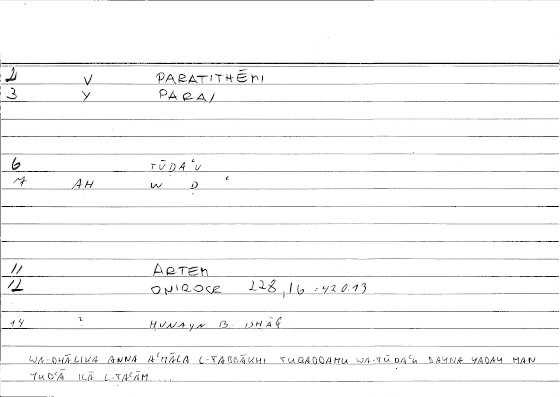 2 V PARATITHĒMI
3 Y PARA/
6 TŪDAʿU
7 AH W Ḍ ʿ
11 ARTEM
12 ONIROCR 228,16 = 420.13
14 ? ḤUNAYN B. ISḤĀQ
WA-DHĀLIKA ANNA AʿMĀLA L-ṬABBĀKHI TUQADDAMU WA-TŪDAʿU BAYNA YADAY MAN
YUDʿĀ ILĀ L-ṬAʿĀM ...